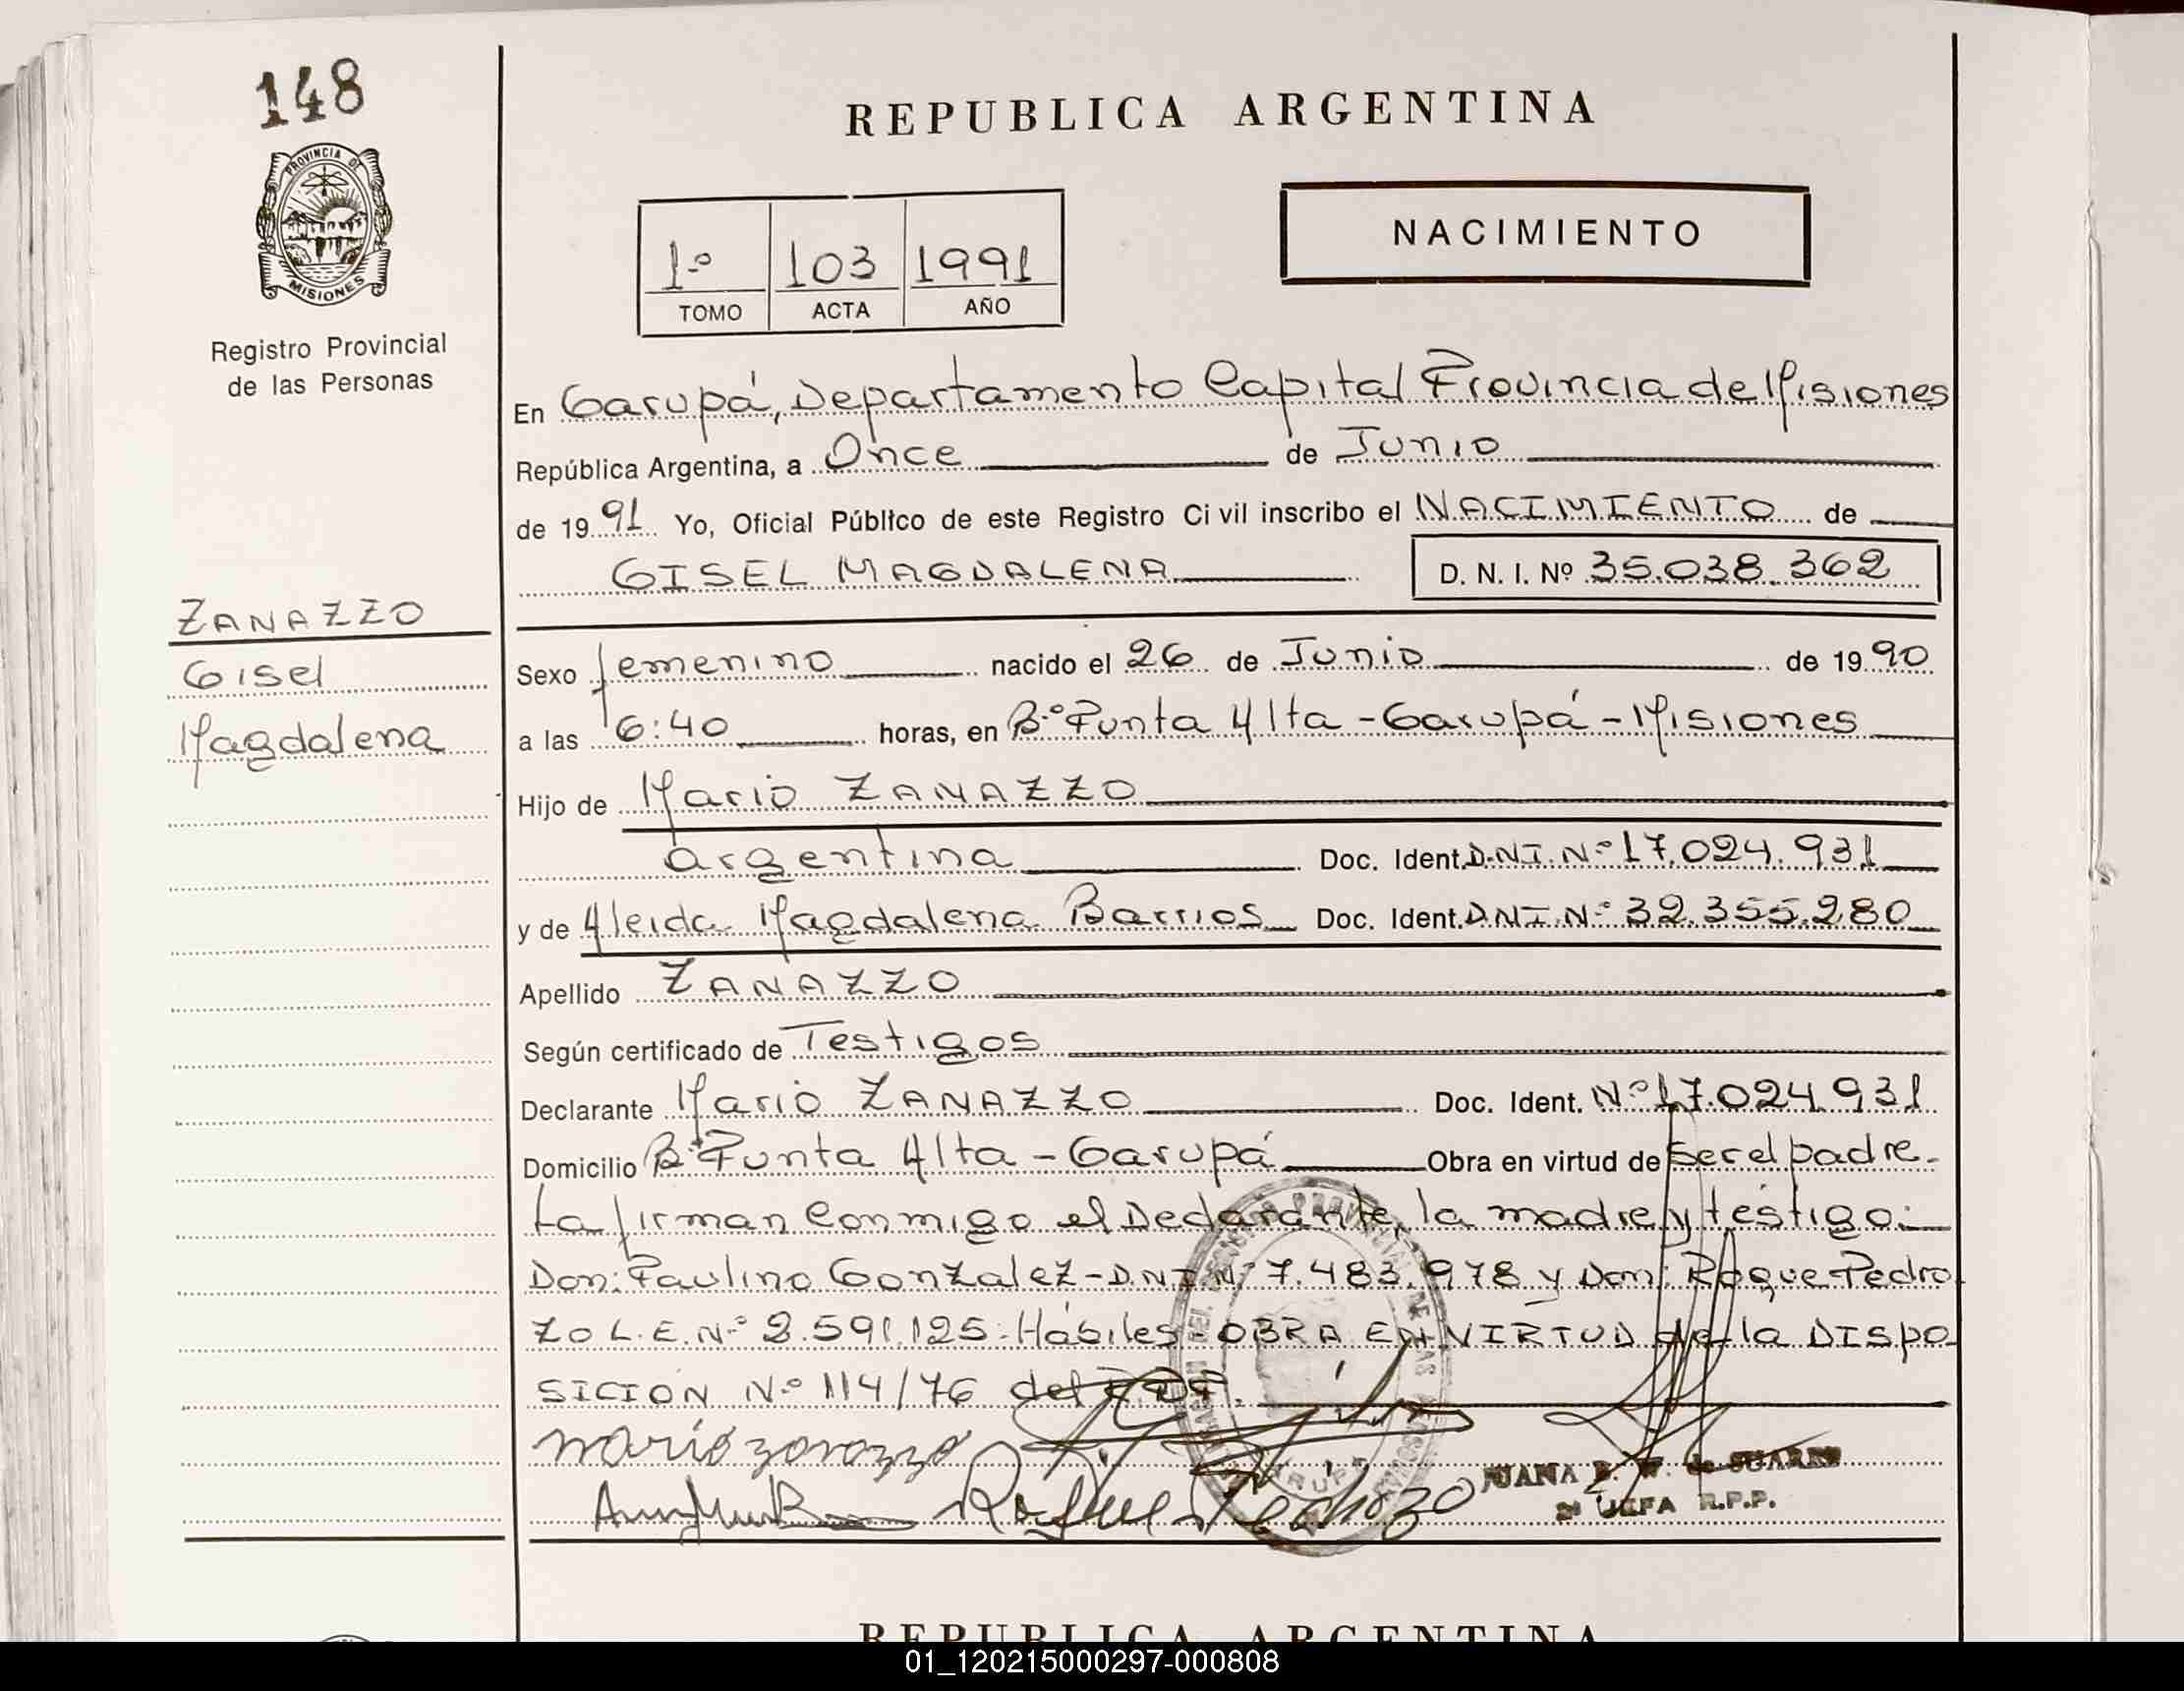 148
PROVINCIA DE
MISIONES
Registro Provincial
de las Personas
ZANAZZO
Gisel
Magdalena
REPUBLICA ARGENTINA
NACIMIENTO
1º 103 1991
TOMO ACTA AÑO
En Garupá, Departamento Capital Provincia de Misiones
República Argentina, a Once de Junio
de 1991 Yo, Oficial Público de este Registro Civil inscribo el NACIMIENTO de
GISEL MAGDALENA D. N. I. Nº 35.038.362
Sexo femenino nacido el 26 de Junio de 1990
a las 6:40 horas, en Bº Punta Alta - Garupá - Misiones
Hijo de Mario ZANAZZO
argentina Doc. Ident. D.N.I. Nº 17.024.931
y de Aleida Magdalena Barrios Doc. Ident. D.N.I. Nº 32.355.280
Apellido ZANAZZO
Según certificado de Testigos
Declarante Mario ZANAZZO Doc. Ident. Nº 17.024.931
Domicilio Bº Punta Alta - Garupá Obra en virtud de ser el padre.
La firman conmigo el Declarante, la madre y testigo:
Don: Paulino Gonzalez - D.N.I. Nº 7.483.978 y Don: Roque Pedro
zo L.E. Nº 2.591.125: Hábiles - OBRA EN VIRTUD de la DISPO
SICION Nº 114/76 del
mario zanazzo
Roque Pedrozo
JUANA B. W. de SUAREZ
2ª JEFA R.P.P.
REPUBLICA ARGENTINA
01_120215000297-000808